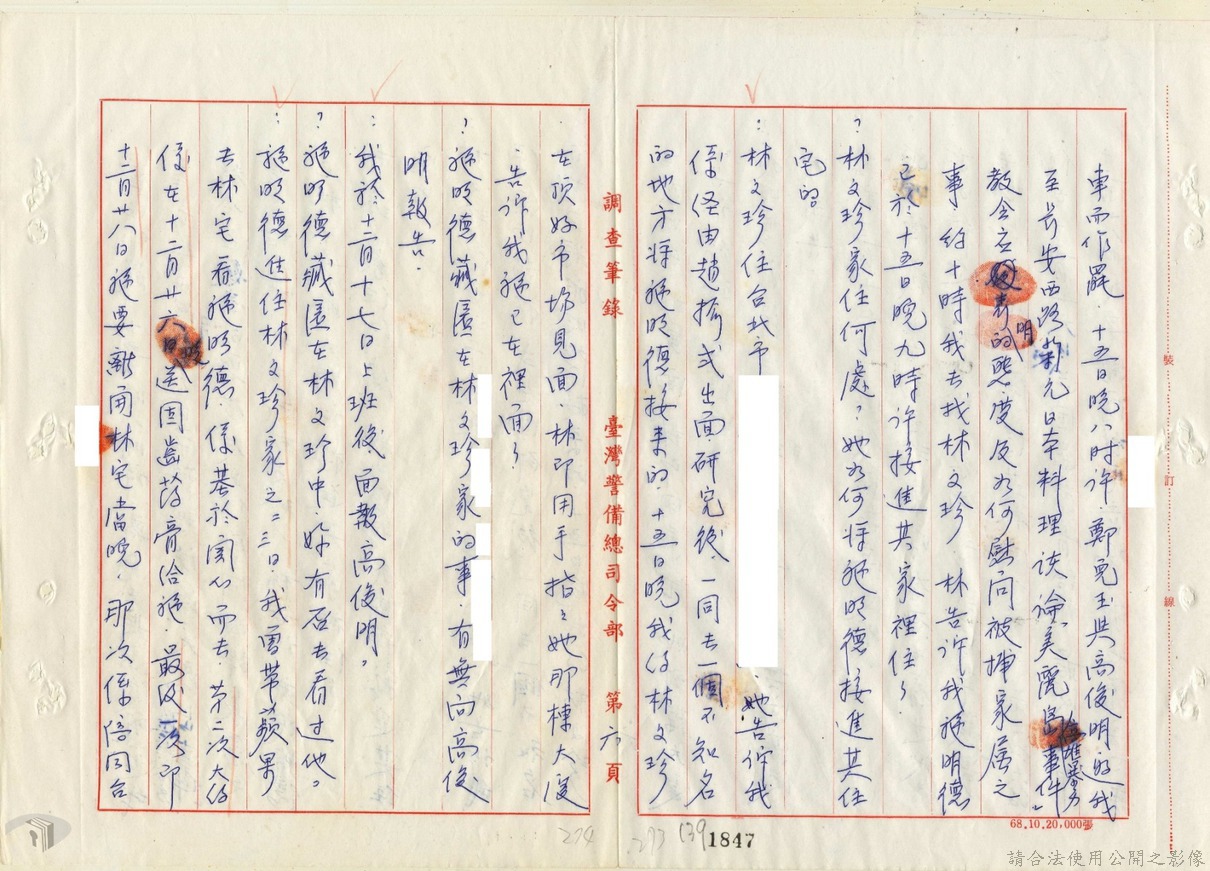 車而作罷．十五日晚八时许．鄭兒玉與高俊明政我
至長安西路新元日本料理谈論美麗島高雄暴力事件」
教会应表明的態度及如何慰问被押家属之
事．約十時我去找林文珍．林告诉我施明德
已於十五日晚九時许接進其家裡住了．
？林文珍家住何處？她如何将施明德接進其住
宅的。
：林文珍住台北市
．她告诉我
係经由趙振弍出面．研究後．一同去一個不知名
的地方将施明德接来的．十五日晚我们林文珍
調查筆錄 臺灣警備總司令部 第六頁
．在頂好市場見面．林即用手指之她那棟大廈
．告诉我施已在裡面了．
？施明德藏匿在林文珍家的事．有無向高俊
明報告．
：我於十二月十七日上班後．面報高俊明。
？施明德藏匿在林文珍中．妳有否去看过他。
：施明德進住林文珍家之二三日．我曾带蘋果
去林宅看施明德．係基於関心而去．第二次大约
係在十二月廿六日晚送固齒葯膏给施．最後一次即
十二月廿八日施要離開林宅當晚．那次係倍同台
68.10.20,000張
裝
訂
線
274
273
139
1847
請合法使用公開之影像